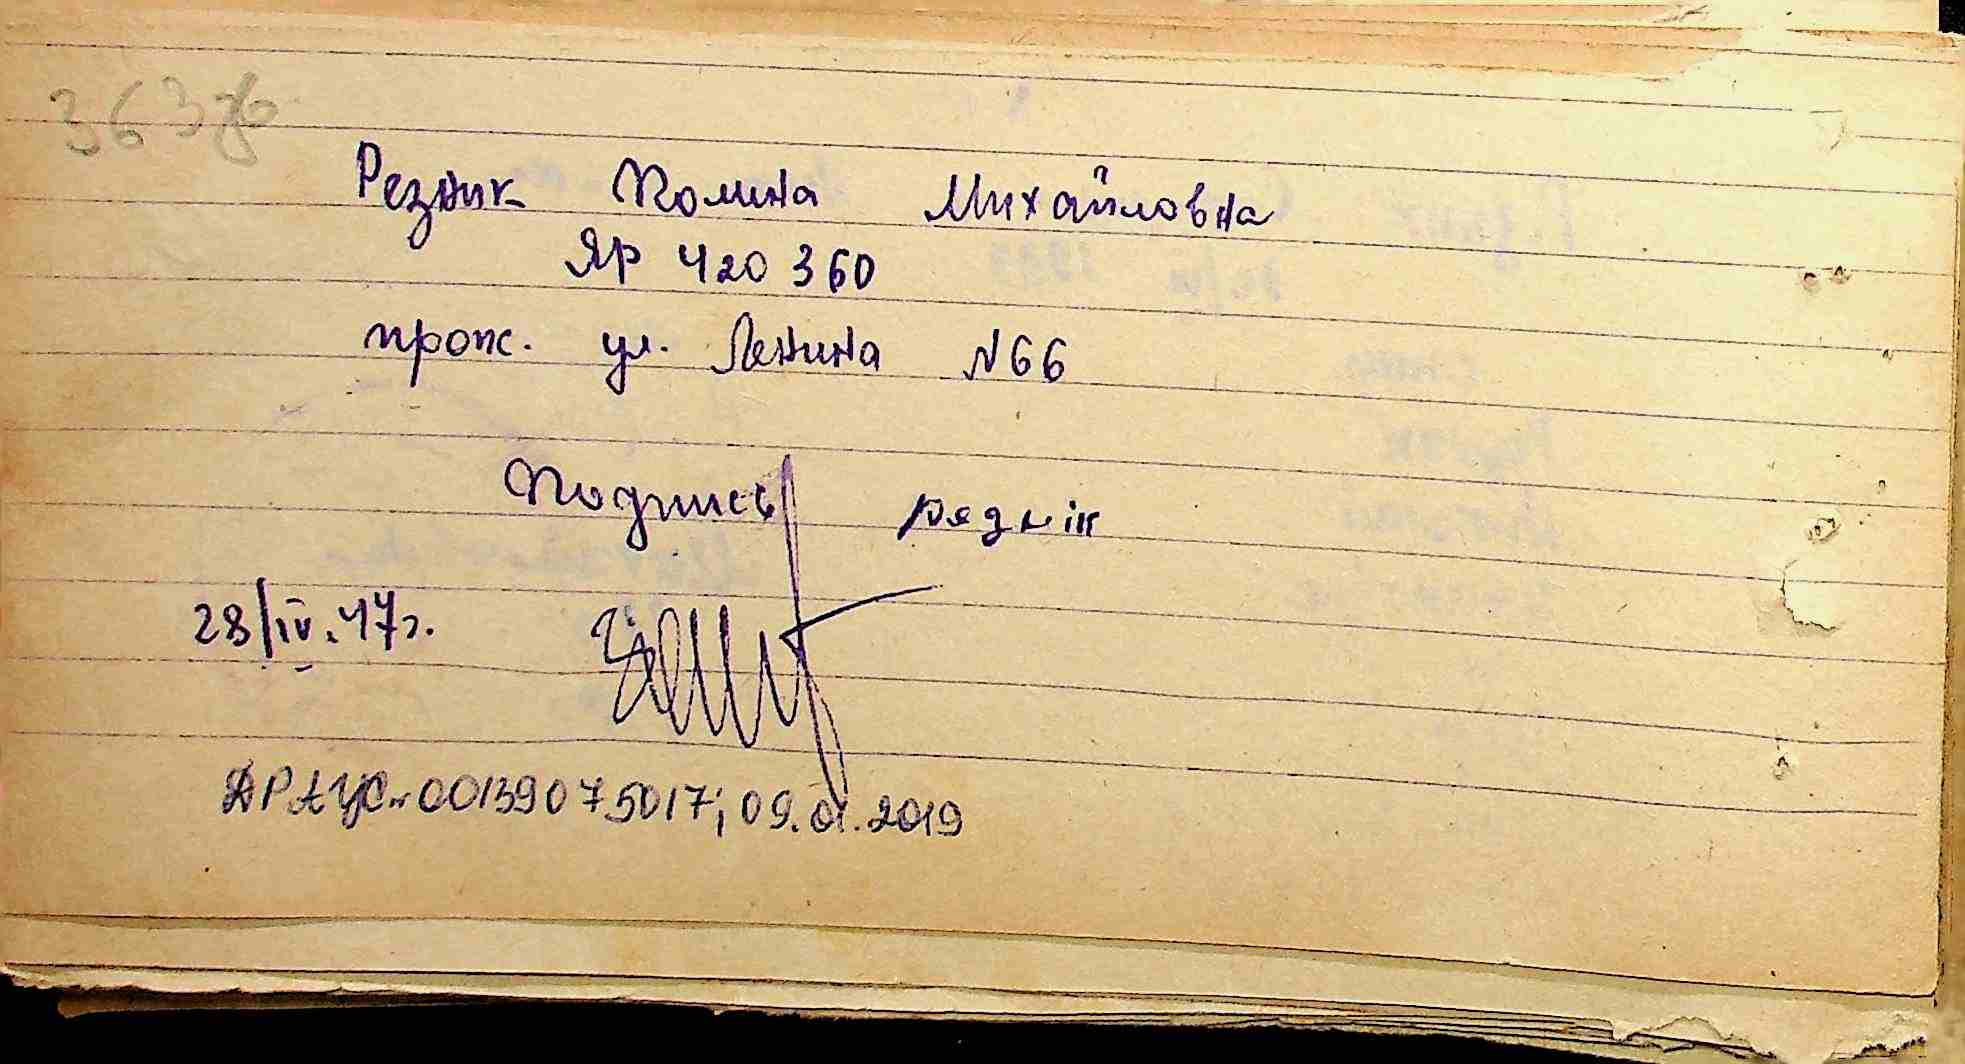 363зв
Резник Полина Михайловна
ЯР 420360
прож. ул. Ленина N66
Подпись Рєзнік
28/IV.47г.
ДРАЦС 00139075017; 09.01.2019